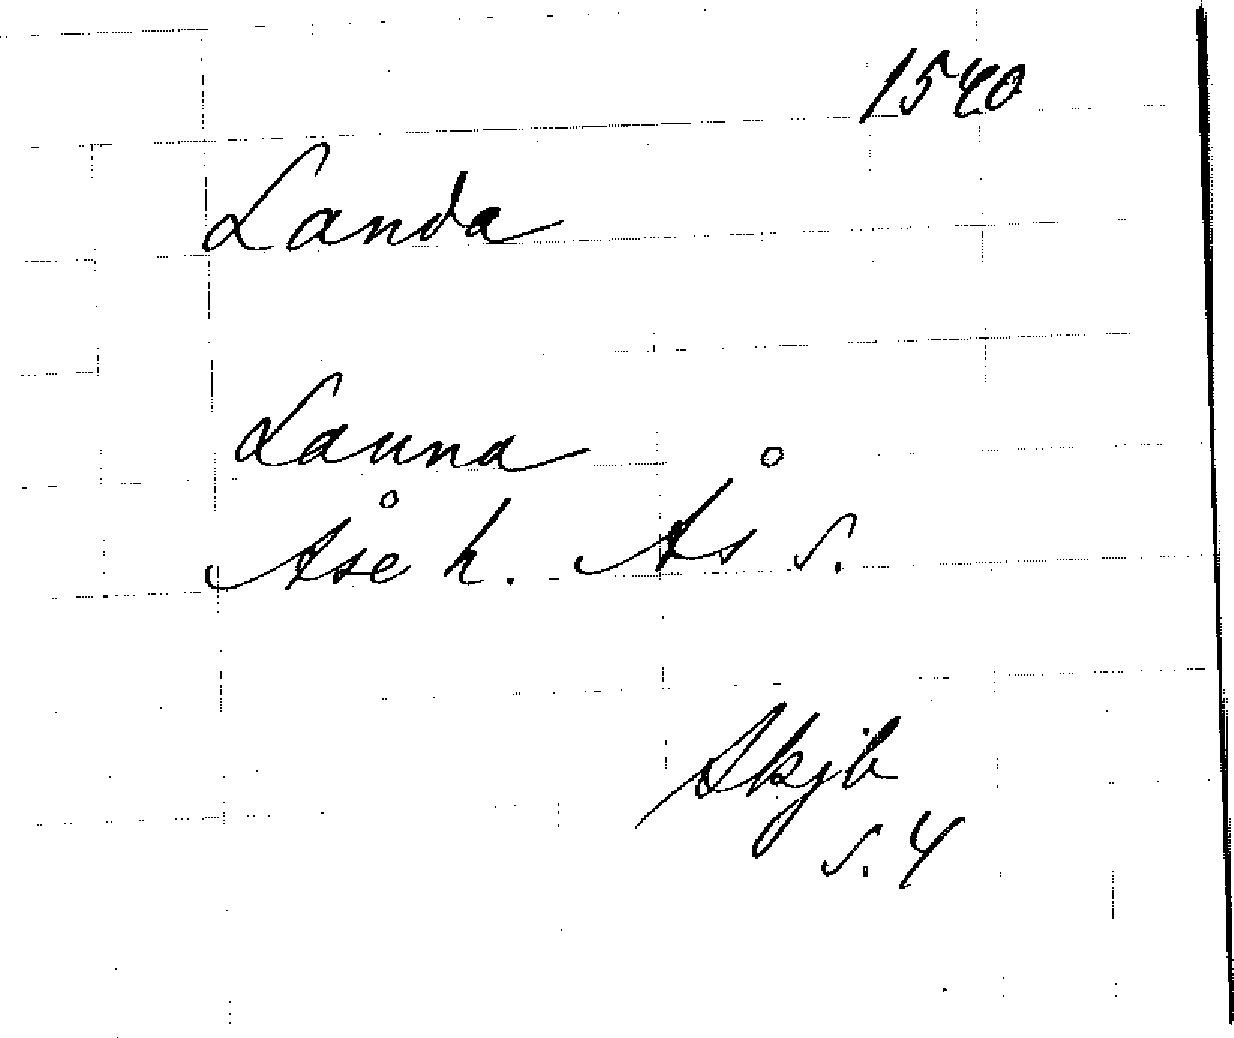 1540
Landa
Launa
Åse h. Ås s.
Skjb
s. 4